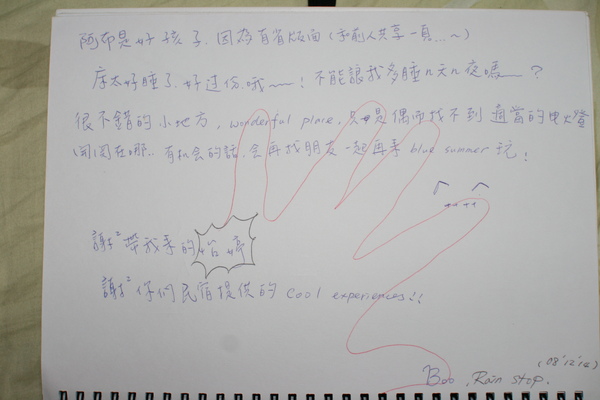 阿布是好孩子.因為有省版面(與前人共享一頁...~)
床太好睡了.好過份哦~~! 不能讓我多睡n天n夜嗎~?
很不錯的小地方, wonderful place, 只是偶而找不到適當的电火燈
開関在哪.. 有机会的話.会再找朋友一起再來 blue summer 玩!
謝謝²帶我來的怡婷
謝謝²你們民宿提供的 cool experiences!!
(08'12'14)
Boo, Rain stop.